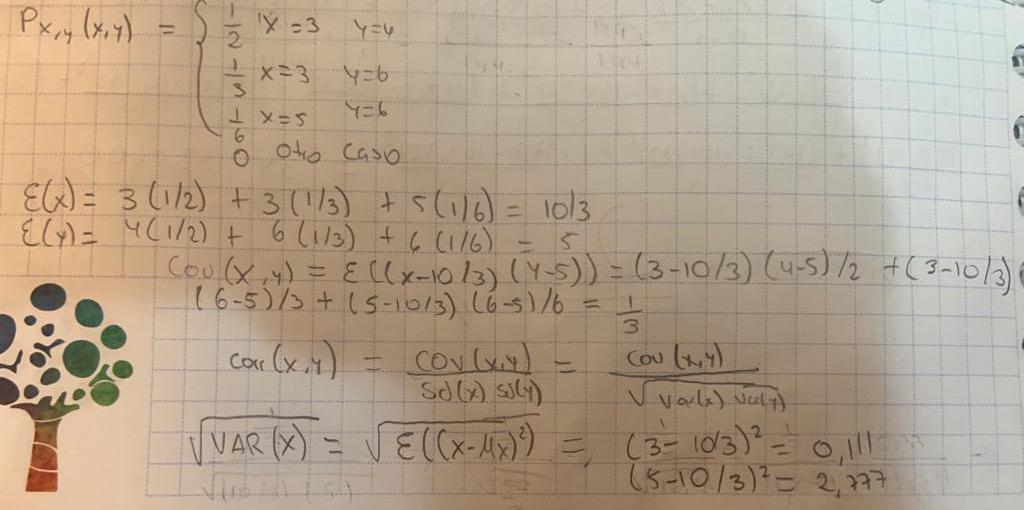 Px,y (x,y) = { 1/2 x=3 y=4
1/3 x=3 y=6
1/6 x=5 y=6
0 otro caso
E(x)= 3 (1/2) + 3 (1/3) + 5(1/6) = 10/3
E(y)= 4(1/2) + 6 (1/3) + 6 (1/6) = 5
Cov(x,y) = E((x-10/3) (y-5)) = (3-10/3) (4-5)/2 + (3-10/3)
(6-5)/3 + (5-10/3) (6-5)/6 = 1/3
corr(x,y) = cov(x,y) / sd(x) sd(y) = cov(x,y) / √var(x) var(y)
√VAR(X) = √E((x-Mx)²) = (3-10/3)² = 0,111
(5-10/3)² = 2,777